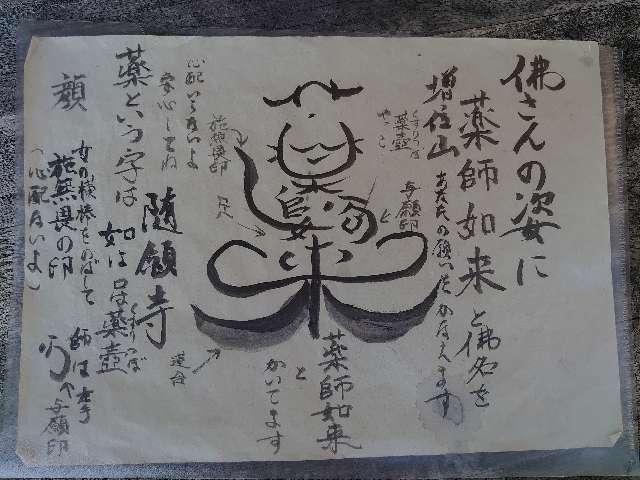 佛さんの姿に
薬師如来と佛名を
増位山
あなたの願い
かなえます
くすりつぼ
薬壺
与願印
施無畏印
足
蓮台
薬師如来
と
かいてます
心配いらないよ
安心してね
随願寺
薬という字は
顔
如は口は薬壺
くすりつぼ
女の横棒をのばして
施無畏の印
(心配ないよ)
師は左手
与願印